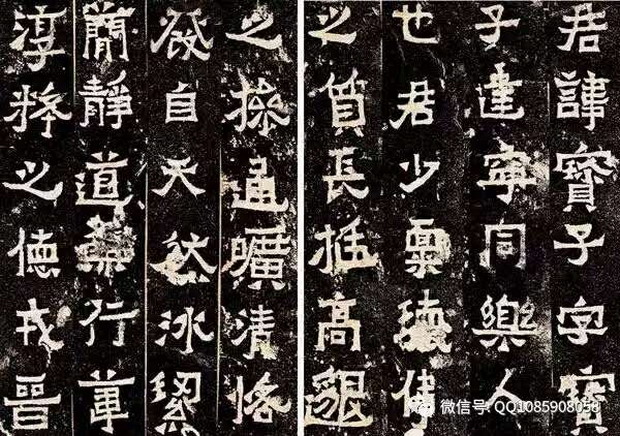 君諱寶子字寶
子建寧同樂人
也君少稟瓌偉
之質長挺高邈
之操通曠清恪
發自天然冰絜
簡靜道兼行葦
淳粹之德戎晉
微信号: QQ1085908058